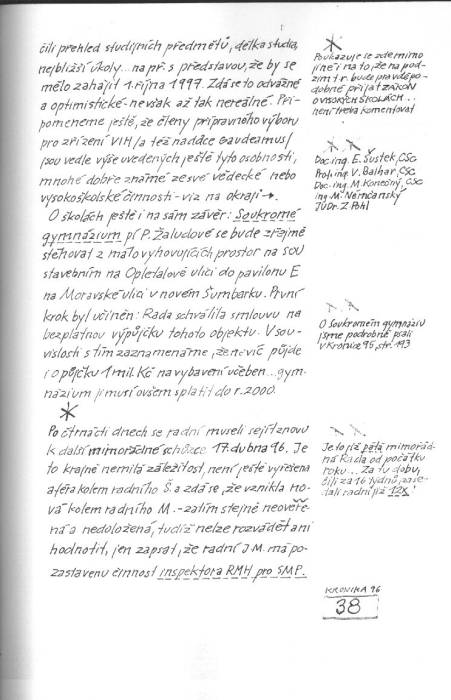 čili přehled studijních předmětů, délka studia,
nejbližší úkoly... na př. s představou, že by se
mělo zahájit 1. října 1997. Zdá se to odvážné
a optimistické - nevšak až tak nereálné. Při-
pomeneme ještě, že členy přípravného výboru
pro zřízení VIH /a též nadace Gaudeamus/
jsou vedle výše uvedených ještě tyto osobnosti,
mnohé dobře známé ze své vědecké nebo
vysokoškolské činnosti - viz na okraji →.
O školách ještě i na sám závěr: Soukromé
gymnázium pí P. Žaludové se bude zřejmě
stěhovat z málo vyhovujících prostor na SOU
stavebním na Opletalově ulici do pavilonu E
na Moravské ulici v novém Šumbarku. První
krok byl učiněn: Rada schválila smlouvu na
bezplatnou výpůjčku tohoto objektu. V sou-
vislosti s tím zaznamenáme, že nevíc půjde
i o půjčku 1 mil. Kč na vybavení učeben... gym-
názium ji musí ovšem splatit do r. 2000.
Po čtrnácti dnech se radní museli sejít znovu
k další mimořádné schůzce 17. dubna 96. Je
to krajně nemilá záležitost, není ještě vyřešena
aféra kolem radního Š. a zdá se, že vznikla no-
vá kolem radního M. - zatím stejně neověře-
ná a nedoložená, tudíž nelze rozvádět ani
hodnotit, jen zapsat, že radní J.M. má po-
zastavenu činnost inspektora RMH pro SMP.
Poukazuje se zde mimo
jiné i na to, že na pod-
zim t.r. bude pravděpo-
dobně přijat ZÁKON
O VYSOKÝCH ŠKOLÁCH...
není třeba komentovat
Doc. ing. E. Šustek, CSc
Prof. ing. V. Balhar, CSc
Doc. ing. M. Konečný, CSc
ing. M. Němčanský
JUDr. Z. Pohl
O Soukromém gymnáziu
jsme podrobně psali
v Kronice 95, str. 193
Je to již pátá mimořád-
ná Rada od počátku
roku... Za tu dobu,
čili za 16 týdnů, zase-
dali radní již 12x!
KRONIKA 96
38